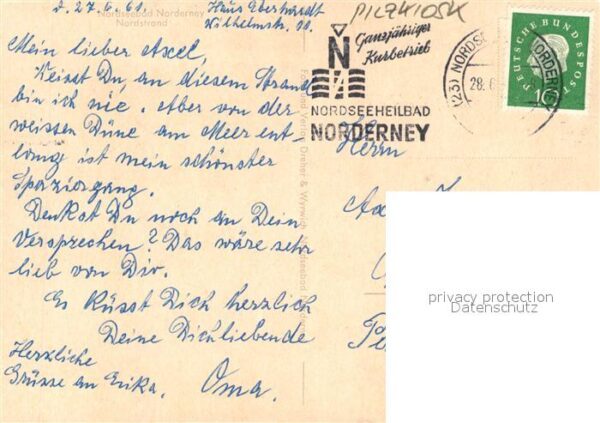 Nordseebad Norderney
Nordstrand
d. 27.6.61. Haus Eberhardt
Wilhelmstr. 11
PILZKIOSK
Mein lieber Axel,
Weisst Du, an diesem Strand
bin ich nie. Aber von der
weissen Düne am Meer ent-
lang ist mein schönster
Spaziergang.
Denkst Du noch an Dein
Versprechen? Das wäre sehr
lieb von Dir.
Es küsst Dich herzlich
Deine Dich liebende
Oma.
Herzliche
Grüsse an Erika.
N
Ganzjähriger
Kurbetrieb
NORDSEEHEILBAD
NORDERNEY
(23) NORDS ORDERNEY
28.6
DEUTSCHE BUNDESPOST
10
Verlag Dreher &
Herrn
Ax
privacy protection
Datenschutz